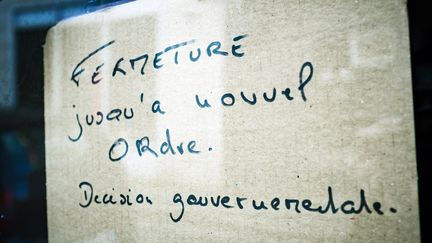 FERMETURE
jusqu'a nouvel
ORdre.
Decision gouvernementale.